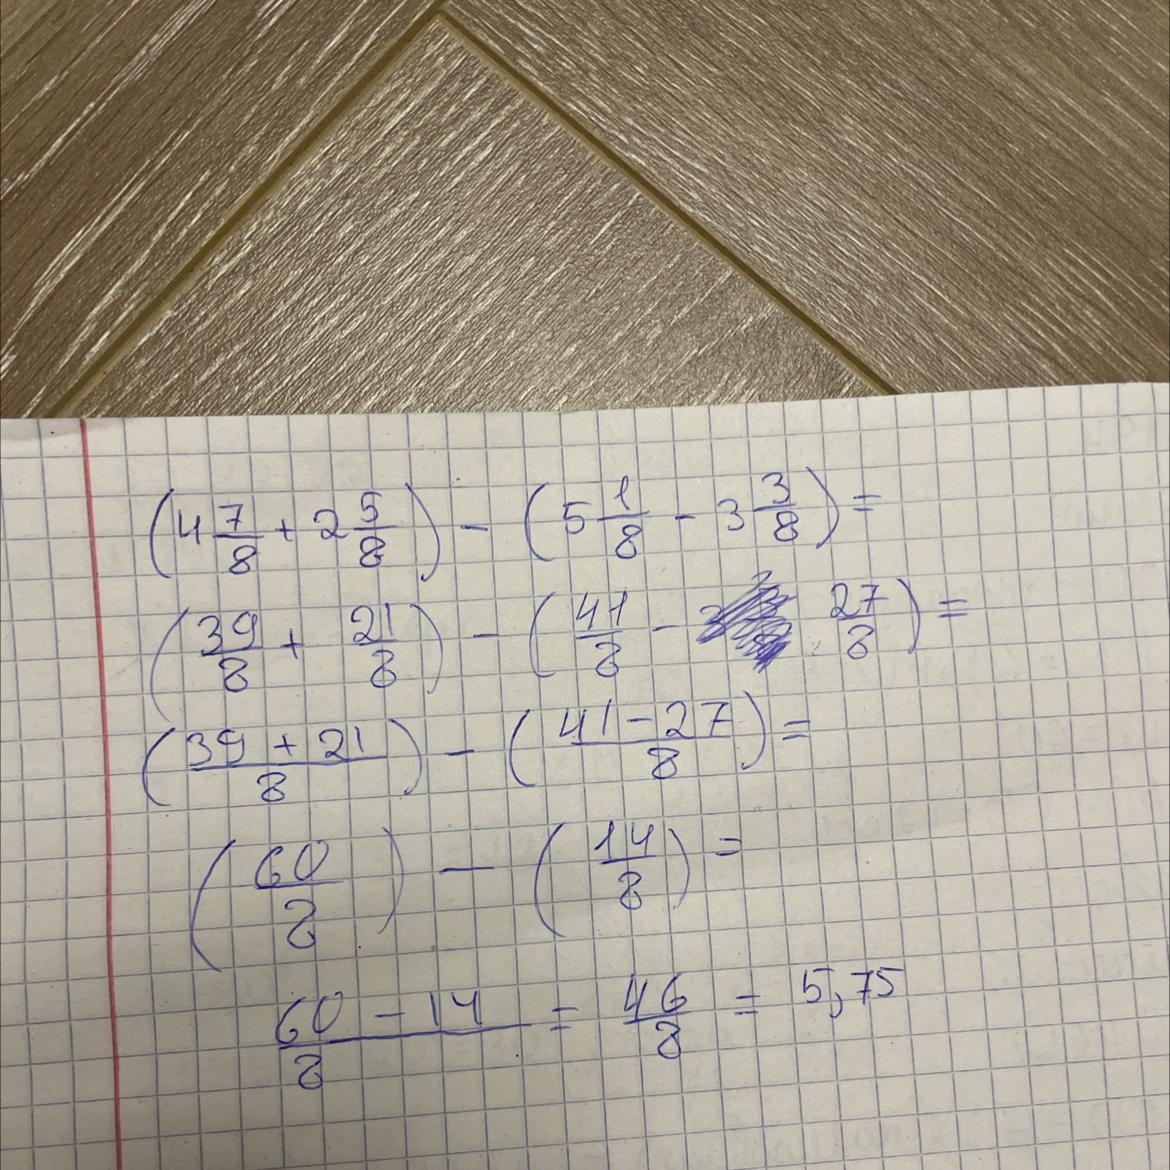 (4 7/8 + 2 5/8) - (5 1/8 - 3 3/8) =
(39/8 + 21/8) - (41/8 - 27/8) =
(39 + 21/8) - (41 - 27/8) =
(60/8) - (14/8) =
60 - 14/8 = 46/8 = 5,75